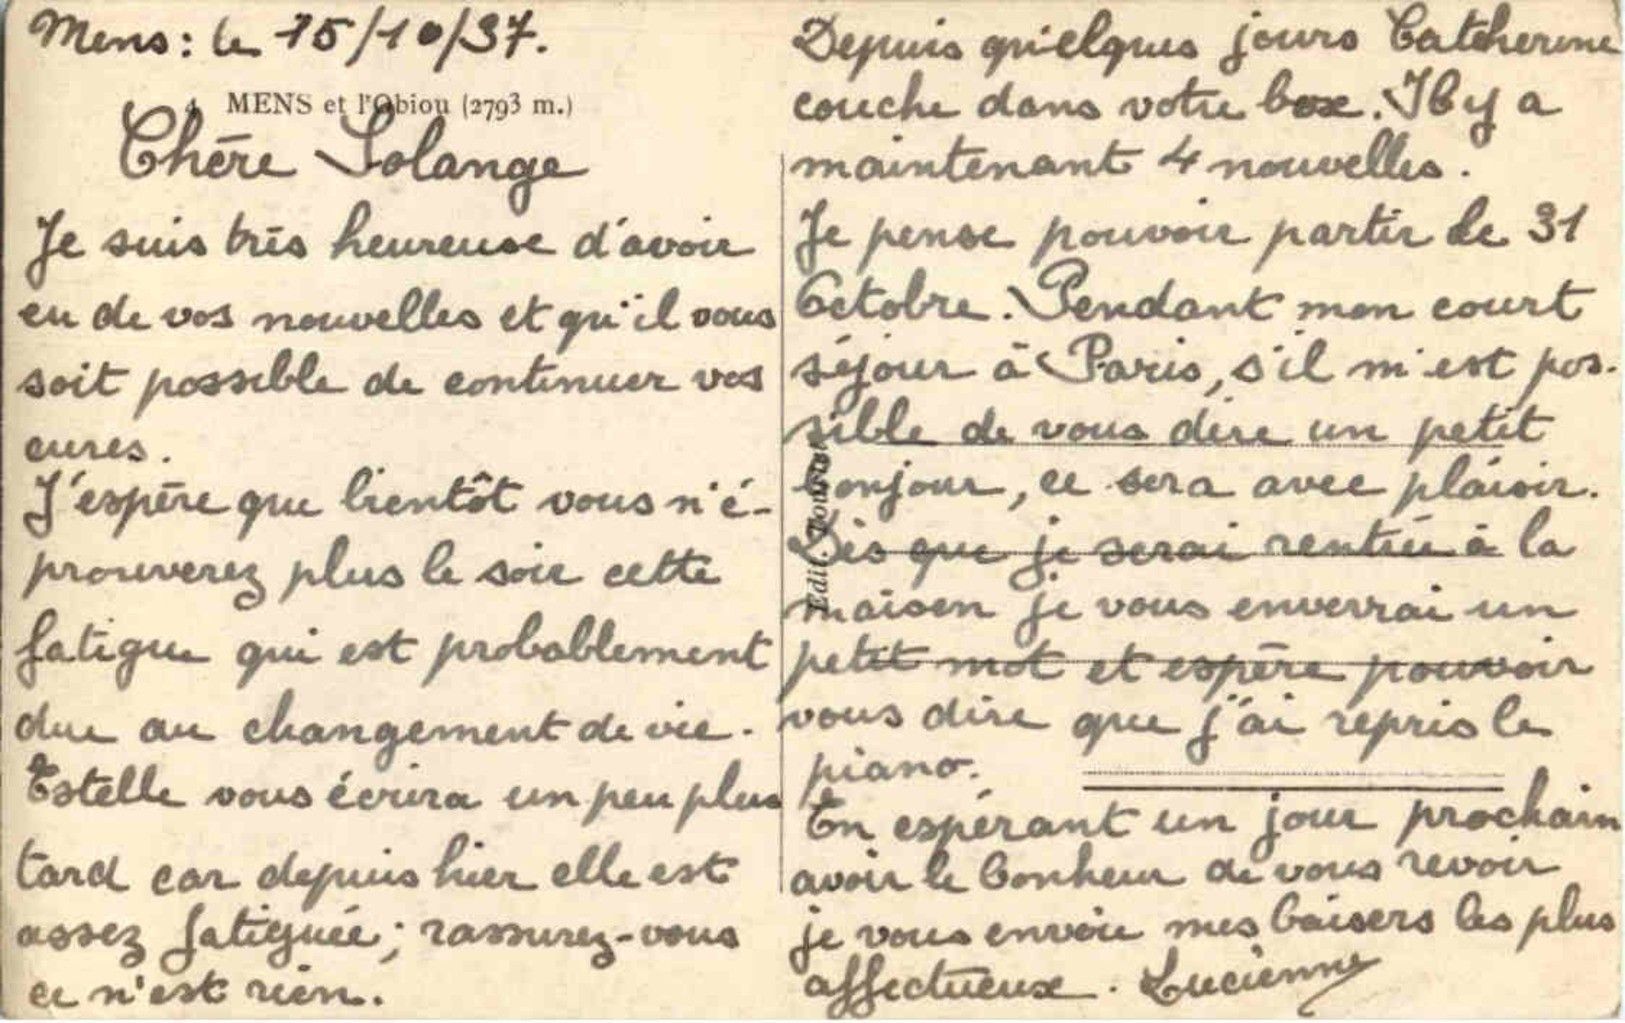 Mens: le 15/10/37.
4 MENS et l'Obiou (2793 m.)
Chère Solange
Je suis très heureuse d'avoir
eu de vos nouvelles et qu'il vous
soit possible de continuer vos
cures.
J'espère que bientôt vous n'é-
prouverez plus le soir cette
fatigue qui est probablement
due au changement de vie.
Estelle vous écrira un peu plus
tard car depuis hier elle est
assez fatiguée; rassurez-vous
ce n'est rien.
Depuis quelques jours Catherine
couche dans votre box. Il y a
maintenant 4 nouvelles.
Je pense pouvoir partir le 31
Octobre. Pendant mon court
séjour à Paris, s'il m'est pos-
sible de vous dire un petit
bonjour, ce sera avec plaisir.
Dès que je serai rentrée à la
maison je vous enverrai un
petit mot et espère pouvoir
vous dire que j'ai repris le
piano.
En espérant un jour prochain
avoir le bonheur de vous revoir
je vous envoie mes baisers les plus
affectueux. Lucienne
Edit.